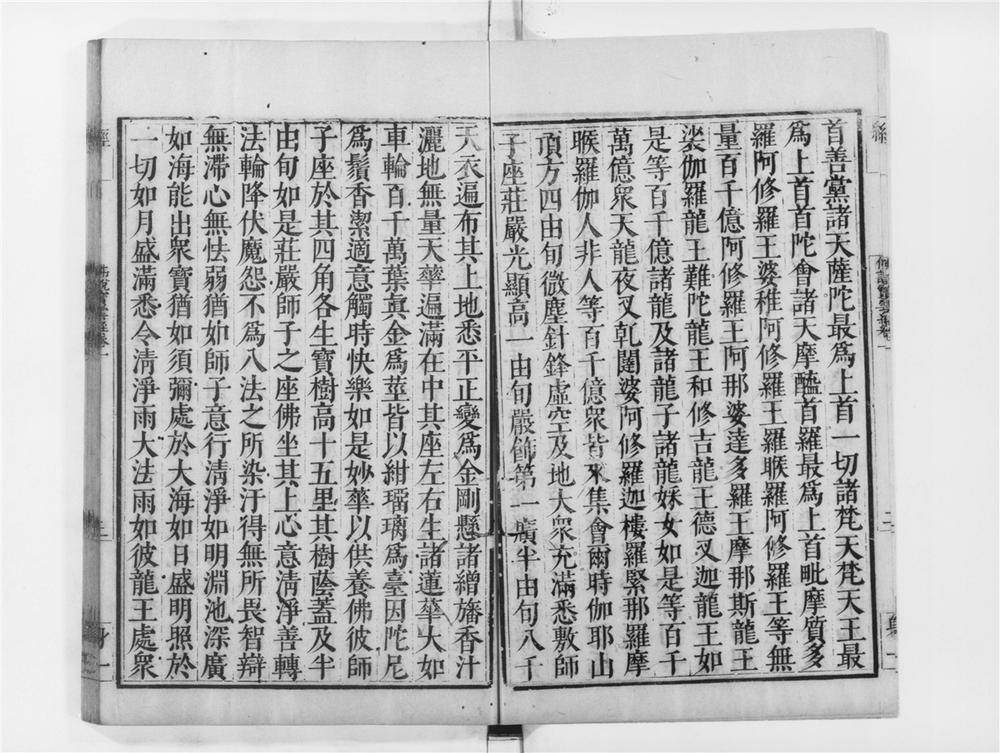 首善黨諸天薩陀最爲上首一切諸梵天梵天王最
爲上首首陀會諸天摩醯首羅最爲上首毗摩質多
羅阿修羅王婆稚阿修羅王羅睺羅阿修羅王等無
量百千億阿修羅王阿那婆達多羅王摩那斯龍王
娑伽羅龍王難陀龍王和修吉龍王德叉迦龍王如
是等百千億諸龍及諸龍子諸龍婇女如是等百千
萬億衆天龍夜叉乹闥婆阿修羅迦樓羅緊那羅摩
睺羅伽人非人等百千億衆皆來集會爾時伽耶山
頂方四由旬微塵針鋒虛空及地大衆充滿悉敷師
子座莊嚴光顯高一由旬嚴飾第一廣半由旬八千
天衣遍布其上地悉平正變爲金剛懸諸繒旛香汁
灑地無量天華遍滿在中其座左右生諸蓮華大如
車輪百千萬葉眞金爲莖皆以紺瑠璃爲臺因陀尼
爲鬚香潔適意觸時快樂如是妙華以供養佛彼師
子座於其四角各生寶樹高十五里其樹蔭蓋及半
由旬如是莊嚴師子之座佛坐其上心意清淨善轉
法輪降伏魔怨不爲八法之所染汙得無所畏智辯
無滯心無怯弱猶如師子意行清淨如明淵池深廣
如海能出衆寶猶如須彌處於大海如日盛明照於
一切如月盛滿悉令清淨雨大法雨如彼龍王處衆